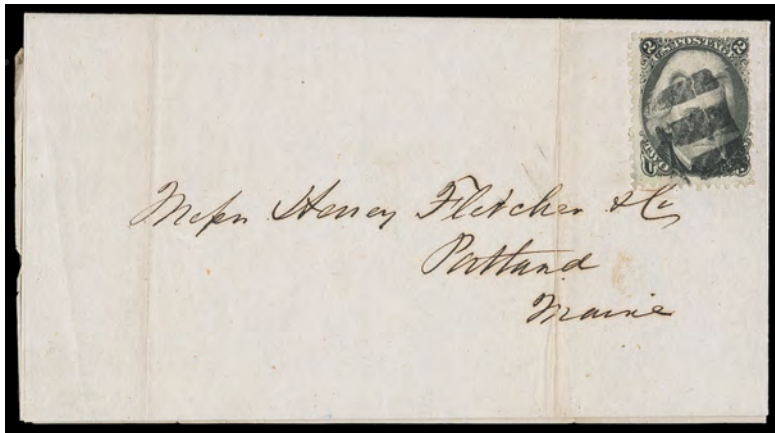 2 U.S. POSTAGE 2
Messrs Henry Fletcher & Co
Portland
Maine